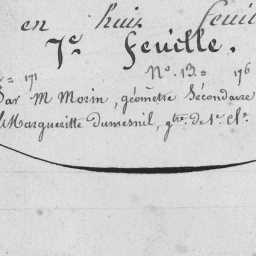 en huit feuil
7e Feuille.
171 No. 13 = 176
Par M Morin, géomètre Secondaire
Margueritte Dumesnil, gtre. de 1e. Cle.